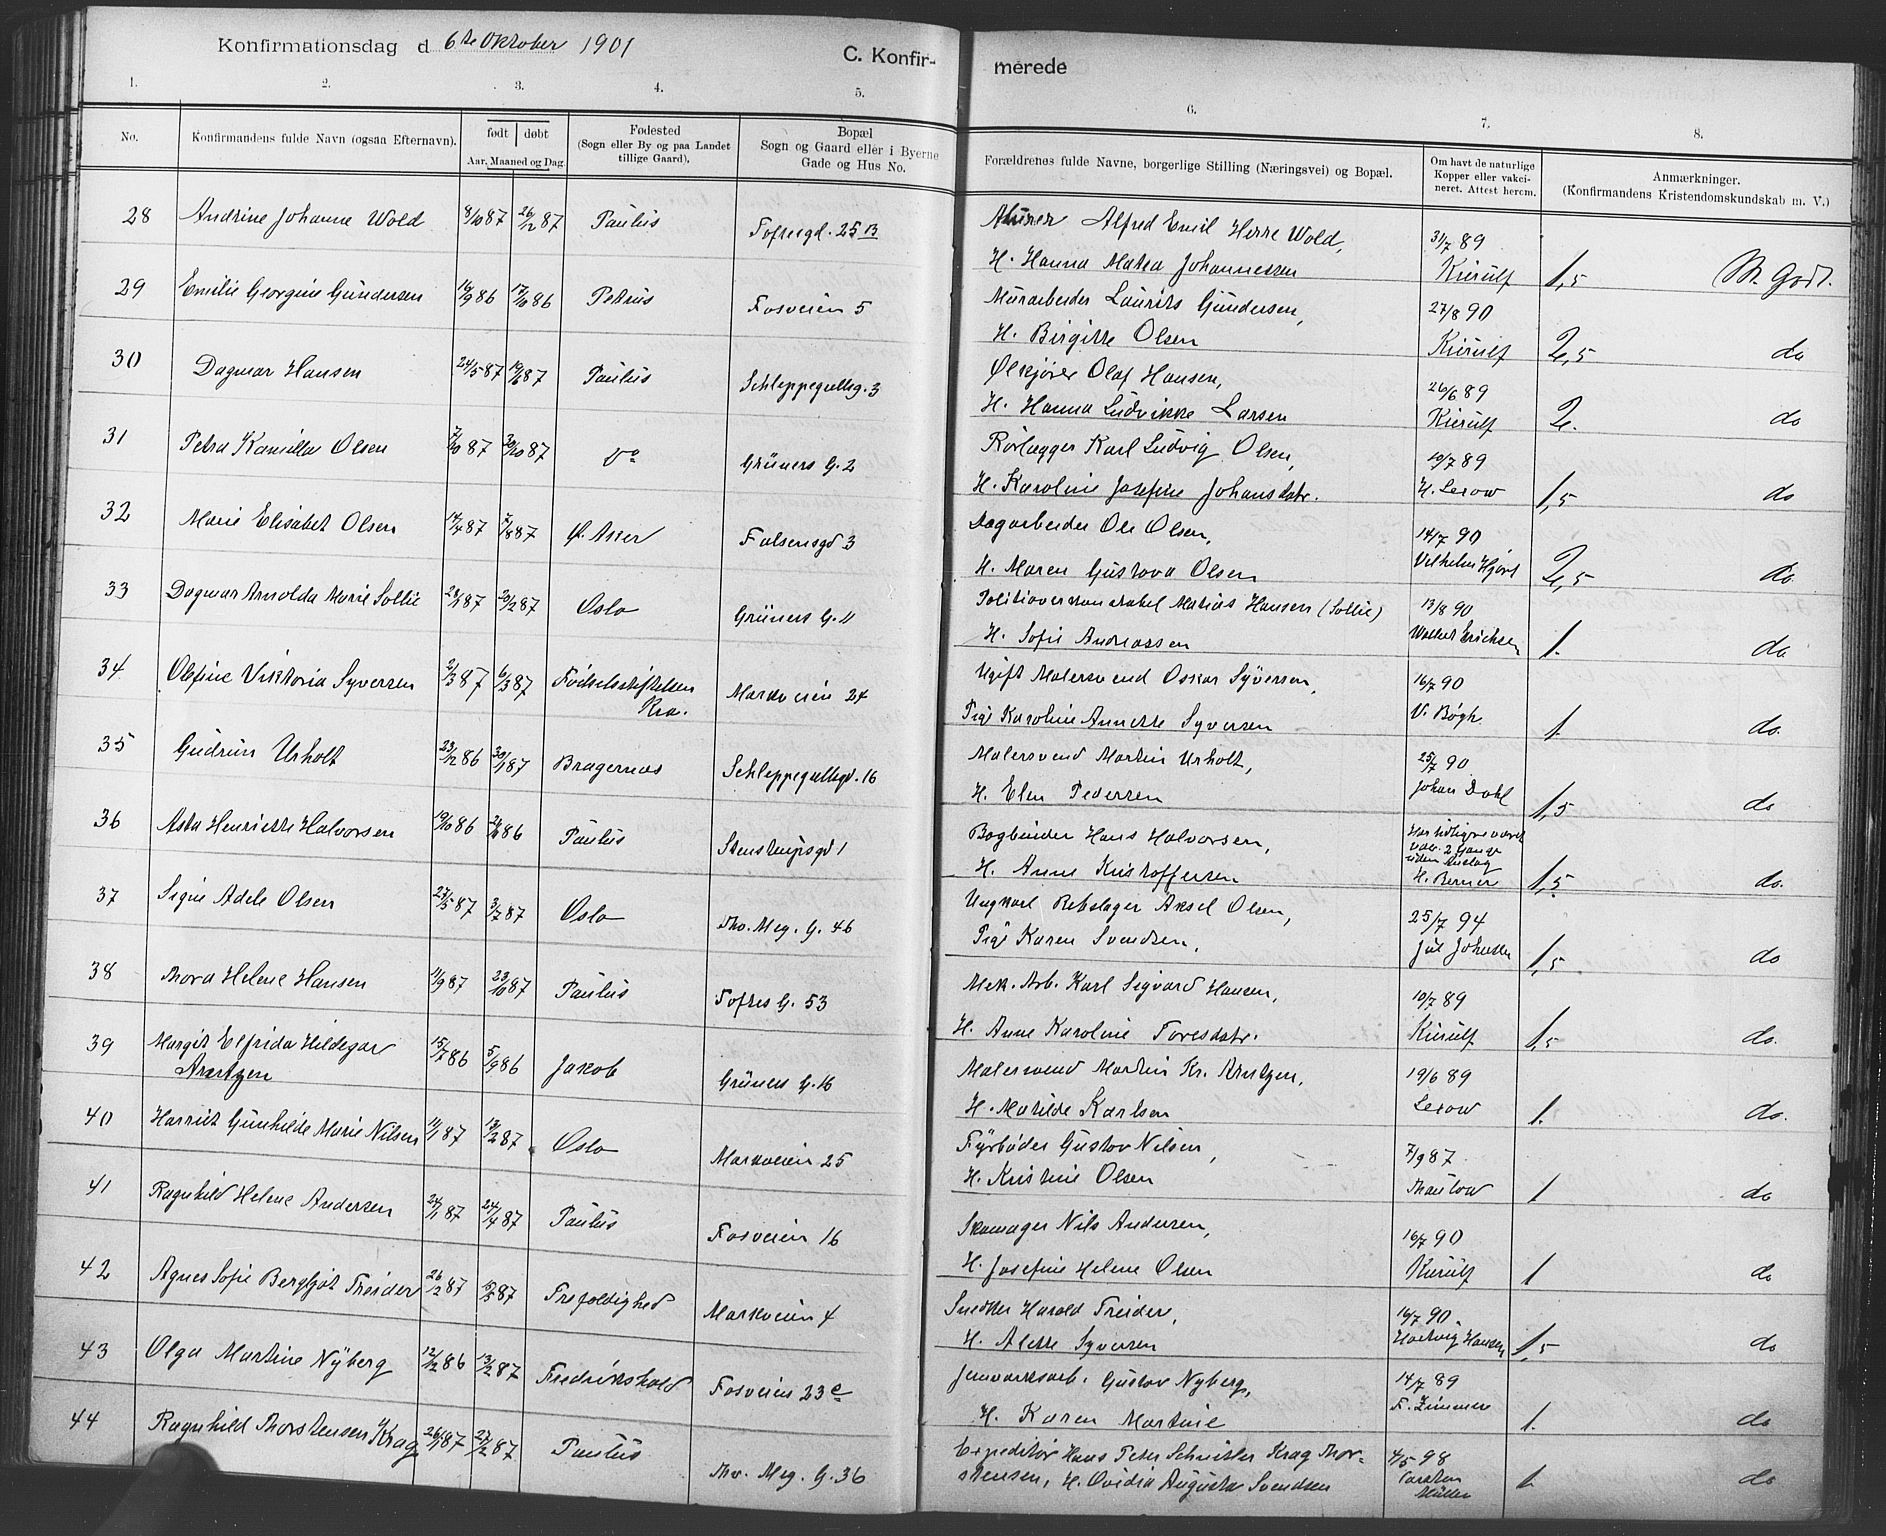 Konfirmationsdag d 6te Oktober 1901
C. Konfir-merede
1. 2. 3. 4. 5. 6. 7. 8.
No.
Konfirmandens fulde Navn (ogsaa Efternavn).
født døbt
Aar, Maaned og Dag.
Fødested
(Sogn eller By og paa Landet
tillige Gaard).
Bopæl
Sogn og Gaard eller i Byerne
Gade og Hus No.
Forældrenes fulde Navne, borgerlige Stilling (Næringsvei) og Bopæl.
Om havt de naturlige
Kopper eller vakci-
neret. Attest herom.
Anmærkninger.
(Konfirmandens Kristendomskundskab m. V.)
28 Andrine Johanne Wold 26/12 87 Paulus Toftesgd. 25 B
Murer Alfred Emil Herre Wold, 31/7 89
H. Hanna Matea Johannessen Kierulf 1,5 M. Godt.
29 Emilie Georgine Gundersen 86 86 Petrus Fosveien 5
Murarbeider Laurits Gundersen, 27/8 90
H. Birgitte Olsen Kierulf 2,5 do
30 Dagmar Hansen 24/5 87 19/6 87 Paulus Schleppegrellsg. 3
Ølkjører Olaf Hansen, 26/6 89
H. Hanna Ludvikke Larsen Kierulf 2. do
31 Petra Kamilla Olsen 87 30/10 87 Do Grüners G. 2
Rørlægger Karl Ludvig Olsen, 10/7 89
H. Karoline Josefine Johansdatr. H. Lexow 1,5 do
32 Marie Elisabet Olsen 87 7/8 87 Ø. Aker Falsensgd 3
Dagarbeider Ole Olsen, 14/7 90
H. Maren Gustava Olsen Vilhelm Hjort 2,5 do
33 Dagmar Arnolda Marie Sollie 87 20/2 87 Oslo Grüners G. 11
Politioverkonstabel Matias Hansen (Sollie) 13/8 90
H. Sofie Andreassen Erichsen 1. do
34 Olefine Viktoria Syversen 2/3 87 6/3 87 Fødselsstiftelsen Markveien 24
Kra.
Ugift Malersvend Oskar Syversen, 16/7 90
Pige Karoline Annette Syversen V. Bøgh. 1. do.
35 Gudrun Urholt 23/12 86 30/1 87 Bragernæs Schleppegrellsgd. 16
Malersvend Martin Urholt, 25/7 90
H. Elen Pedersen Johan Dahl 1,5 do
36 Asta Henriette Halvorsen 19/10 86 86 Paulus Stenstrupsgd 1
Bogbinder Hans Halvorsen, Har tidligere været
vac. 2 Gange
uden Anslag
H. Anne Kristoffersen H. Berner 1,5 do.
37 Signe Adele Olsen 27/5 87 3/7 87 Oslo Thv. Meg. G. 46
Ungkarl Rebslager Aksel Olsen, 25/7 94
Pige Karen Svendsen. Jul Johnsen 1,5 do
38 Thora Helene Hansen 11/9 87 23/10 87 Paulus Toftes G. 53
Mek. Arb. Karl Sigvard Hansen, 10/7 89
H. Anne Karoline Toresdatr. Kierulf 1,5 do.
39 Margit Elfrida Hildegar 15/7 86 5/9 86 Jakob Grüners G. 16
Arntzen
Malersvend Martin Kr. Arntzen, 19/6 89
H. Matilde Karlsen Lexow 1. do.
40 Harriet Gunhilde Marie Nilsen 11/1 87 13/2 87 Oslo Markveien 25
Fyrbøder Gustav Nilsen, 7/9 87
H. Kristine Olsen Thaulow 1 do
41 Ragnhild Helene Andersen 24/1 87 24/4 87 Paulus Fosveien 16
Skomager Nils Andersen, 16/7 90
H. Josefine Helene Olsen Kierulf 1 do
42 Agnes Sofie Bergljot Treider 26/2 87 87 Trefoldighed Markveien 4
Snedker Harald Treider, 16/7 90.
H. Alette Syversen Hartvig Hansen 1,5 do
43 Olga Martine Nyberg 12/12 86 13/2 87 Fredrikshald Fosveien 23 c
Jernværksarb. Gustav Nyberg, 14/7 89
H. Karen Martine F. Zimmer 1. do
44 Ragnhild Thorstensen Krag 26/1 87 27/2 87 Paulus Thv. Meg. G. 36
Expeditør Hans Peter Schnitler Krag Thor- 4/5 98
stensen, H. Ovidia Augusta Svendsen Carsten
Müller 1. do